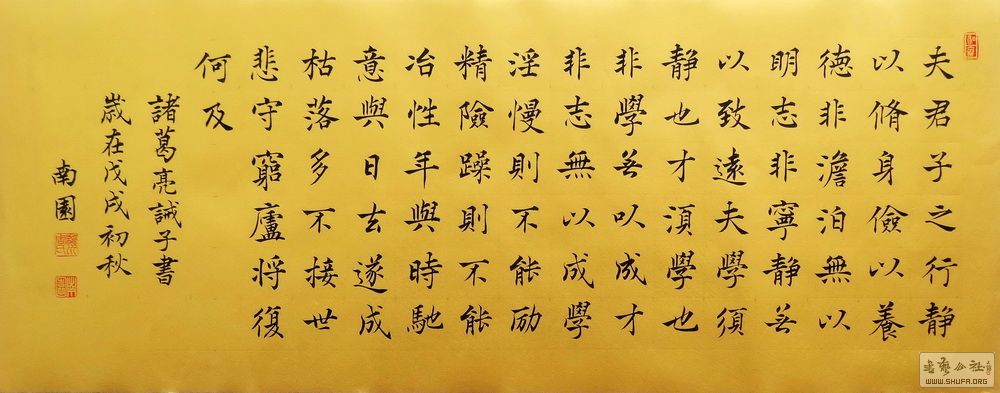 夫君子之行静
以脩身儉以養
德非澹泊無以
明志非寧静无
以致遠夫學須
静也才湏學也
非學无以成才
非志無以成學
淫慢則不能励
精險躁則不能
冶性年與時馳
意與日去遂成
枯落多不接世
悲守窮廬将復
何及
諸葛亮誡子書
歲在戊戌初秋
南園
書藝公社
WWW.SHUFA.ORG